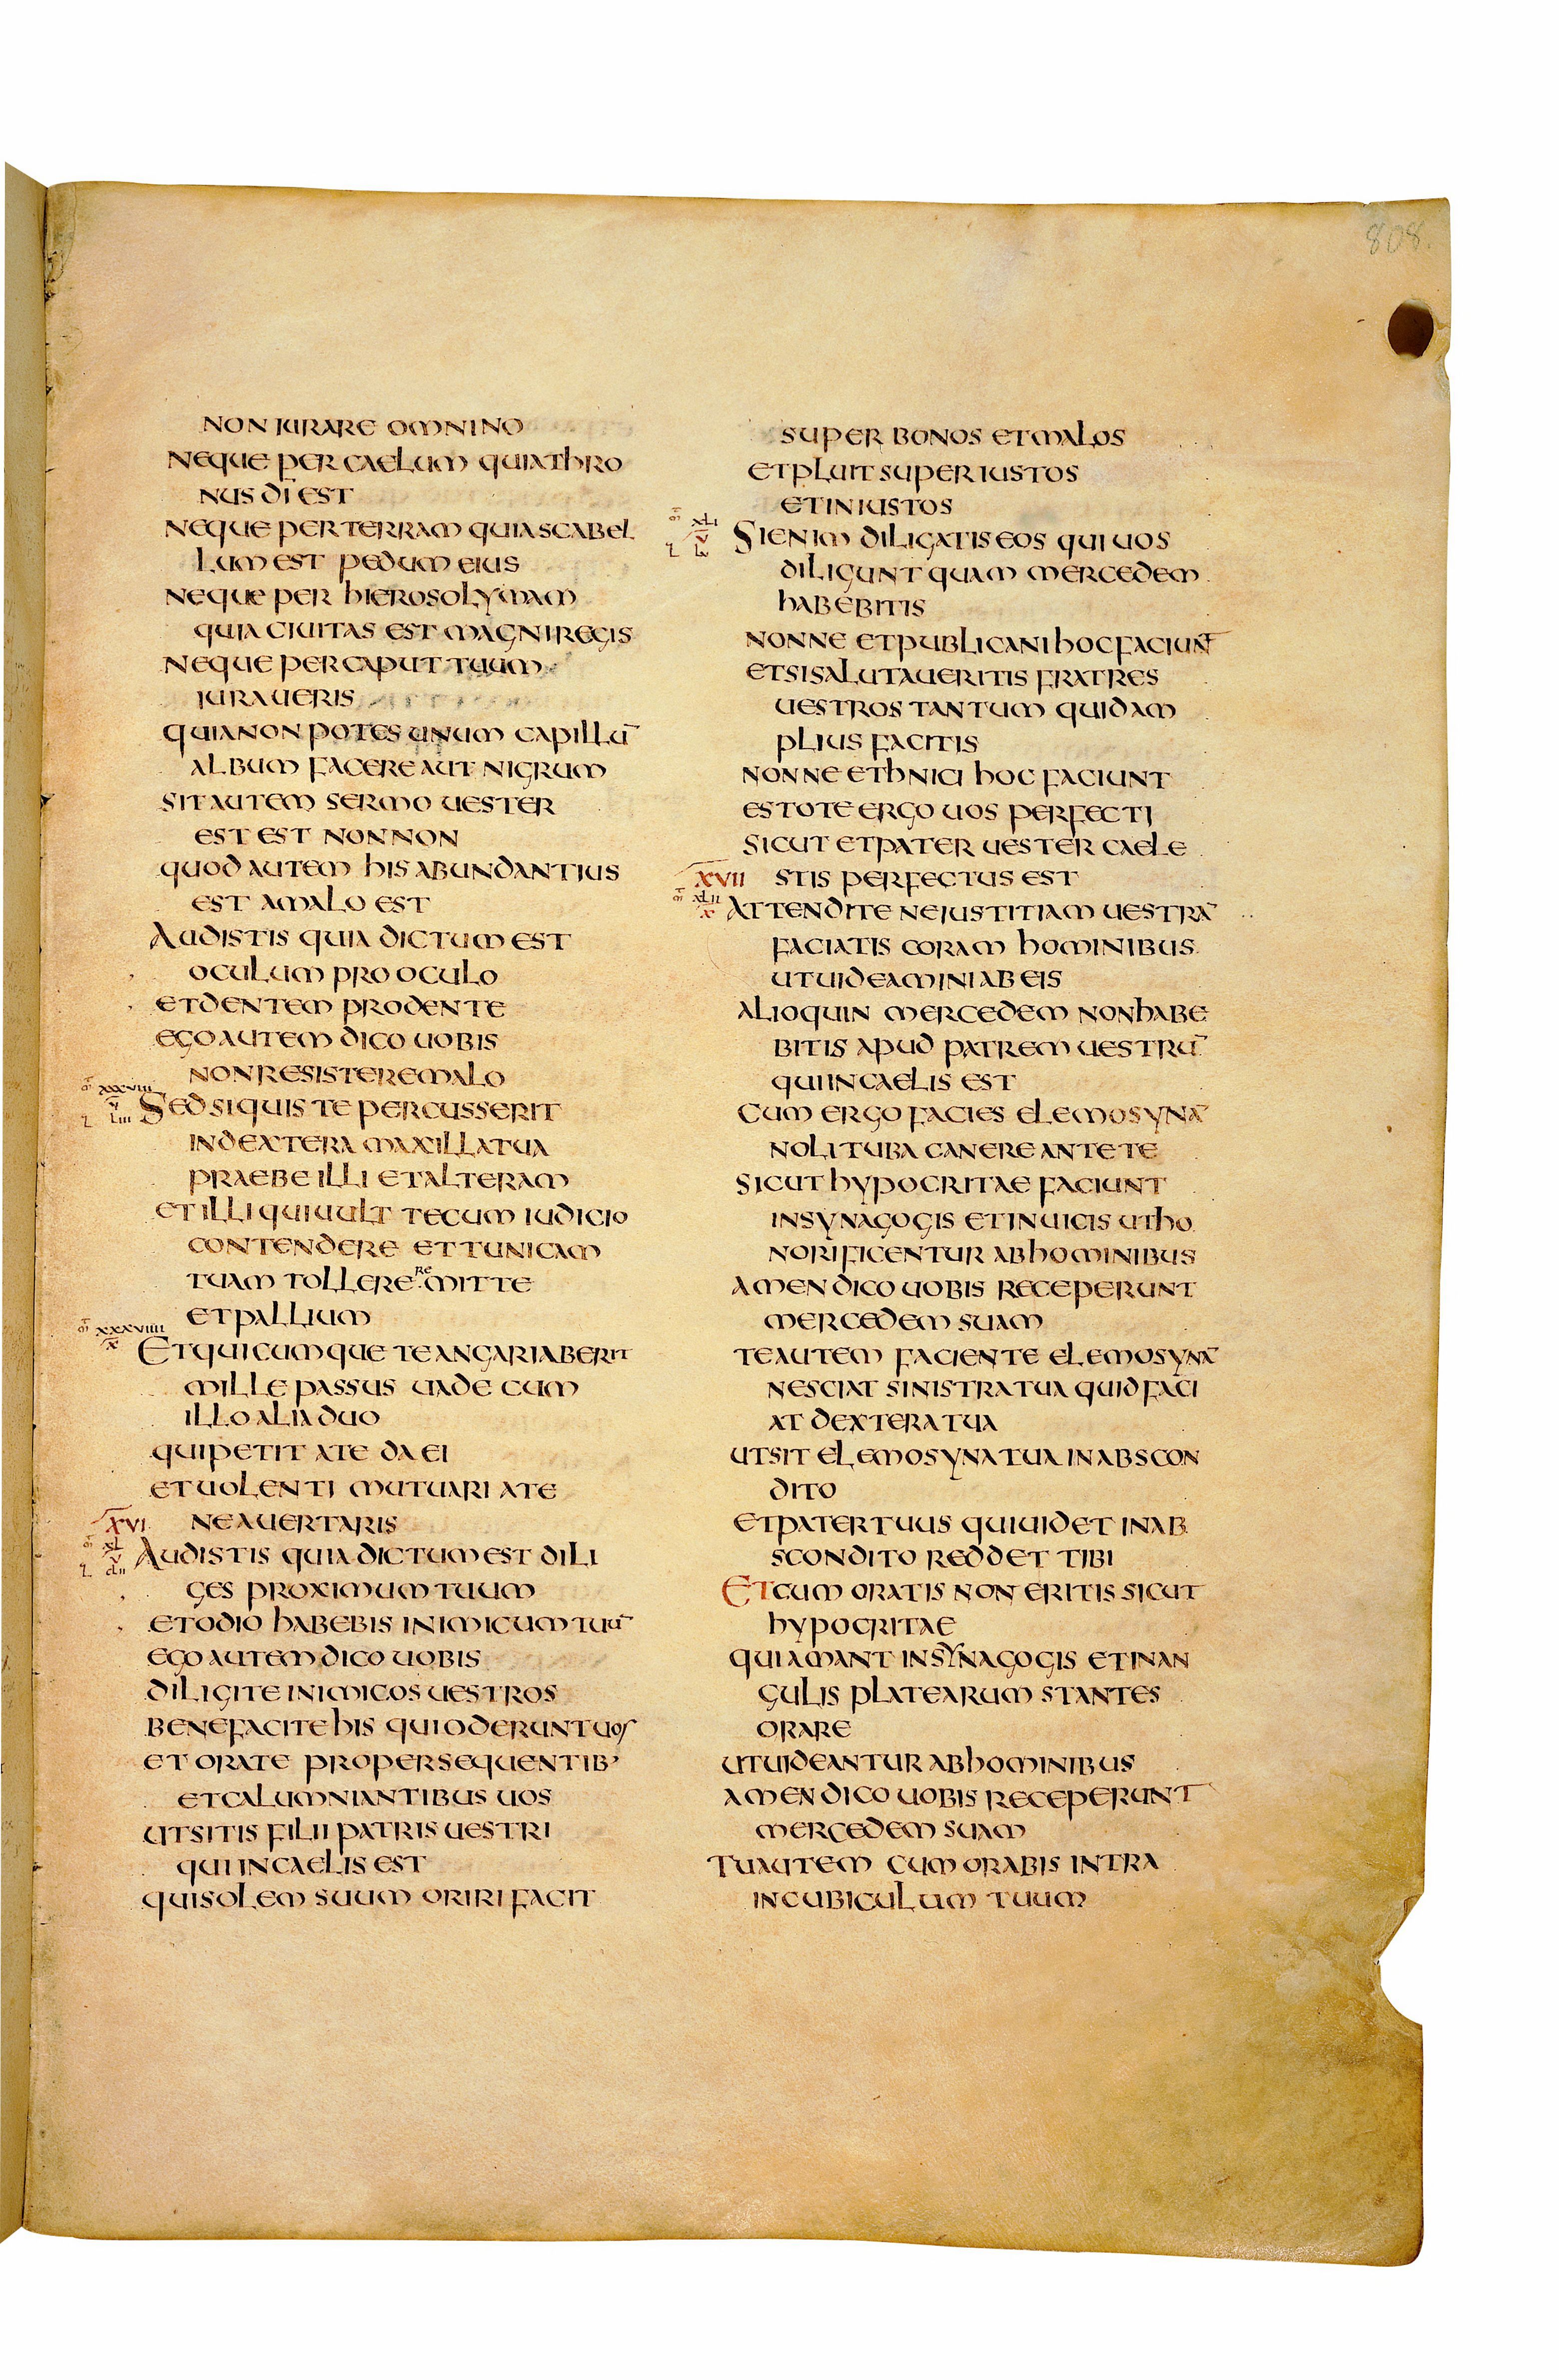 808.
NON IURARE OMNINO
NEQUE PER CAELUM QUIA THRO
NUS DĪ EST
NEQUE PER TERRAM QUIA SCABEL
LUM EST PEDUM EIUS
NEQUE PER HIEROSOLYMAM
QUIA CIUITAS EST MAGNI REGIS
NEQUE PER CAPUT TUUM
IURAUERIS
QUIA NON POTES UNUM CAPILLŪ
ALBUM FACERE AUT NIGRUM
SIT AUTEM SERMO UESTER
EST EST NON NON
QUOD AUTEM HIS ABUNDANTIUS
EST A MALO EST
AUDISTIS QUIA DICTUM EST
OCULUM PRO OCULO
ET DENTEM PRO DENTE
EGO AUTEM DICO UOBIS
NON RESISTERE MALO
XXXVIII
V
L LIII
SED SI QUIS TE PERCUSSERIT
IN DEXTERA MAXILLA TUA
PRAEBE ILLI ET ALTERAM
ET ILLI QUI UULT TECUM IUDICIO
CONTENDERE ET TUNICAM
TUAM TOLLERE RE MITTE
ET PALLIUM
XXXVIIII
X
ET QUICUMQUE TE ANGARIABERIT
MILLE PASSUS UADE CUM
ILLO ALIA DUO
QUI PETIT A TE DA EI
ET UOLENTI MUTUARI A TE
XVI NE AUERTARIS
XL
V
AUDISTIS QUIA DICTUM EST DILI
GES PROXIMUM TUUM
ET ODIO HABEBIS INIMICUM TUŪ
EGO AUTEM DICO UOBIS
DILIGITE INIMICOS UESTROS
BENEFACITE HIS QUI ODERUNT UOS
ET ORATE PRO PERSEQUENTIB'
ET CALUMNIANTIBUS UOS
UT SITIS FILII PATRIS UESTRI
QUI IN CAELIS EST
QUI SOLEM SUUM ORIRI FACIT
SUPER BONOS ET MALOS
ET PLUIT SUPER IUSTOS
ET INIUSTOS
XLI
V
SI ENIM DILIGATIS EOS QUI UOS
DILIGUNT QUAM MERCEDEM
HABEBITIS
NONNE ET PUBLICANI HOC FACIUNT
ET SI SALUTAUERITIS FRATRES
UESTROS TANTUM QUID AM
PLIUS FACITIS
NONNE ETHNICI HOC FACIUNT
ESTOTE ERGO UOS PERFECTI
SICUT ET PATER UESTER CAELE
XVII STIS PERFECTUS EST
XLII
X
ATTENDITE NE IUSTITIAM UESTRĀ
FACIATIS CORAM HOMINIBUS
UT UIDEAMINI AB EIS
ALIOQUIN MERCEDEM NON HABE
BITIS APUD PATREM UESTRŪ
QUI IN CAELIS EST
CUM ERGO FACIES ELEMOSYNĀ
NOLI TUBA CANERE ANTE TE
SICUT HYPOCRITAE FACIUNT
IN SYNAGOGIS ET IN UICIS UT HO
NORIFICENTUR AB HOMINIBUS
AMEN DICO UOBIS RECEPERUNT
MERCEDEM SUAM
TE AUTEM FACIENTE ELEMOSYNĀ
NESCIAT SINISTRA TUA QUID FACI
AT DEXTERA TUA
UT SIT ELEMOSYNA TUA IN ABSCON
DITO
ET PATER TUUS QUI UIDET IN AB
SCONDITO REDDET TIBI
ET CUM ORATIS NON ERITIS SICUT
HYPOCRITAE
QUI AMANT IN SYNAGOGIS ET IN AN
GULIS PLATEARUM STANTES
ORARE
UT UIDEANTUR AB HOMINIBUS
AMEN DICO UOBIS RECEPERUNT
MERCEDEM SUAM
TU AUTEM CUM ORABIS INTRA
IN CUBICULUM TUUM